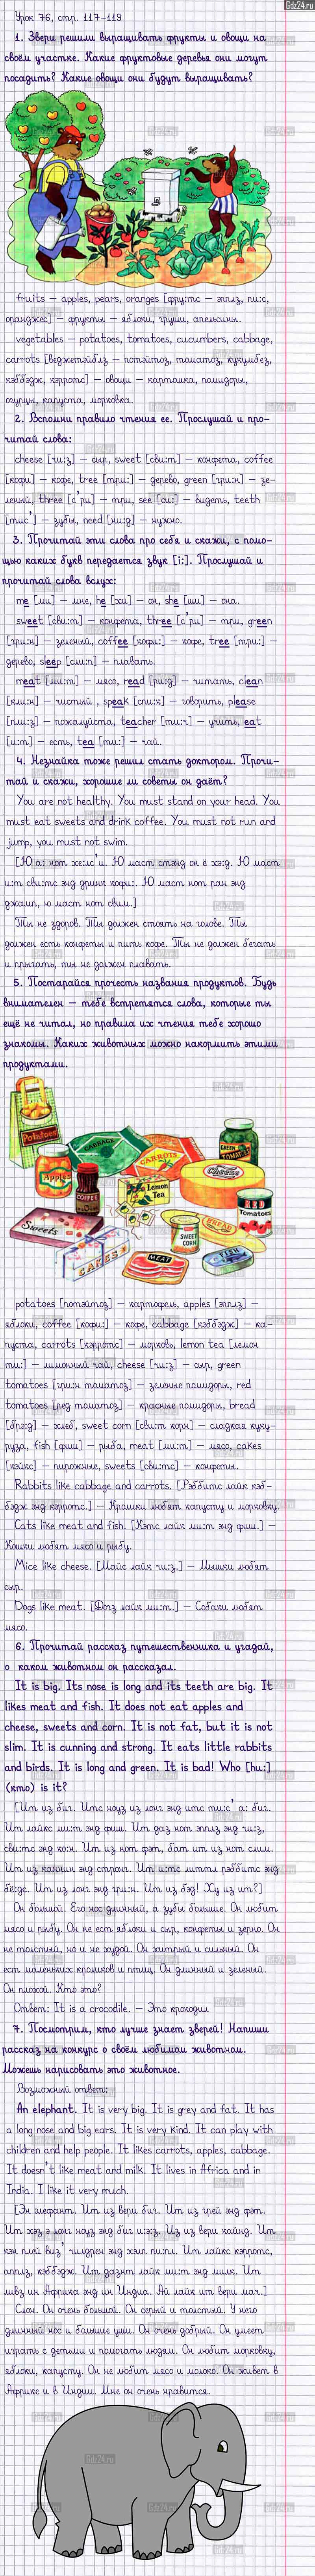 Gdz24.ru
Урок 76, стр. 117-119
1. Звери решили выращивать фрукты и овощи на
своём участке. Какие фруктовые деревья они могут
посадить? Какие овощи они будут выращивать?
fruits – apples, pears, oranges [фру:тс – эплз, пи:с,
оранджес] – фрукты – яблоки, груши, апельсины.
vegetables – potatoes, tomatoes, cucumbers, cabbage,
carrots [веджетэйблз – потэйтоз, томатоз, кукумбез,
кэббэдж, кэрротс] – овощи – картошка, помидоры,
огурцы, капуста, морковка.
2. Вспомни правило чтения ee. Прослушай и про-
читай слова:
cheese [чи:з] – сыр, sweet [сви:т] – конфета, coffee
[кофи] – кофе, tree [три:] – дерево, green [гри:н] – зе-
леный, three [с'ри] – три, see [си:] – видеть, teeth
[тис'] – зубы, need [ни:д] – нужно.
3. Прочитай эти слова про себя и скажи, с помо-
щью каких букв передается звук [i:]. Прослушай и
прочитай слова вслух:
me [ми] – мне, he [хи] – он, she [ши] – она.
sweet [сви:т] – конфета, three [с'ри] – три, green
[гри:н] – зеленый, coffee [кофи:] – кофе, tree [три:] –
дерево, sleep [сли:п] – плавать.
meat [ми:т] – мясо, read [ри:д] – читать, clean
[кли:н] – чистый , speak [спи:к] – говорить, please
[пли:з] – пожалуйста, teacher [ти:ч] – учить, eat
[и:т] – есть, tea [ти:] – чай.
4. Незнайка тоже решил стать доктором. Прочи-
тай и скажи, хорошие ли советы он даёт?
You are not healthy. You must stand on your head. You
must eat sweets and drink coffee. You must not run and
jump, you must not swim.
[Ю а: нот хелс'и. Ю маст стэнд он ё хэд. Ю маст
и:т сви:тс энд дринк кофи:. Ю маст нот ран энд
джамп, ю маст нот свим.]
Ты не здоров. Ты должен стоять на голове. Ты
должен есть конфеты и пить кофе. Ты не должен бегать
и прыгать, ты не должен плавать.
5. Постарайся прочесть названия продуктов. Будь
внимателен – тебе встретятся слова, которые ты
ещё не читал, но правила их чтения тебе хорошо
знакомы. Каких животных можно накормить этими
продуктами.
Potatoes
CABBAGE
CARROTS
GREEN TOMATOES
Apples
COFFEE
Lemon Tea
Cheese
RED Tomatoes
Sweets
CAKES
SWEET CORN
BREAD
MEAT
FISH
potatoes [потэйтоз] – картофель, apples [эплз] –
яблоки, coffee [кофи:] – кофе, cabbage [кэббэдж] – ка-
пуста, carrots [кэрротс] – морковь, lemon tea [лемон
ти:] – лимонный чай, cheese [чи:з] – сыр, green
tomatoes [гри:н томатоз] – зеленые помидоры, red
tomatoes [ред томатоз] – красные помидоры, bread
[брэд] – хлеб, sweet corn [сви:т корн] – сладкая куку-
руза, fish [фиш] – рыба, meat [ми:т] – мясо, cakes
[кэйкс] – пирожные, sweets [сви:тс] – конфеты.
Rabbits like cabbage and carrots. [Рэббитс лайк кэб-
бэдж энд кэрротс.] – Кролики любят капусту и морковку.
Cats like meat and fish. [Кэтс лайк ми:т энд фиш.] –
Кошки любят мясо и рыбу.
Mice like cheese. [Майс лайк чи:з.] – Мышки любят
сыр.
Dogs like meat. [Догз лайк ми:т.] – Собаки любят
мясо.
6. Прочитай рассказ путешественника и угадай,
о каком животном он рассказал.
It is big. Its nose is long and its teeth are big. It
likes meat and fish. It does not eat apples and
cheese, sweets and corn. It is not fat, but it is not
slim. It is cunning and strong. It eats little rabbits
and birds. It is long and green. It is bad! Who [hu:]
(кто) is it?
[Ит из биг. Итс ноуз из лонг энд итс ти:с' а: биг.
Ит лайкс ми:т энд фиш. Ит даз нот эплз энд чи:з,
сви:тс энд ко:н. Ит из нот фэт, бат ит из нот слим.
Ит из каннин энд стронг. Ит и:тс литтл рэббитс энд
бё:дс. Ит из лонг энд гри:н. Ит из бэд! Ху из ит?]
Он большой. Его нос длинный, а зубы большие. Он любит
мясо и рыбу. Он не ест яблоки и сыр, конфеты и зерно. Он
не толстый, но и не худой. Он хитрый и сильный. Он
ест маленьких кроликов и птиц. Он длинный и зеленый.
Он плохой. Кто это?
Ответ: It is a crocodile. – Это крокодил
7. Посмотрим, кто лучше знает зверей! Напиши
рассказ на конкурс о своём любимом животном.
Можешь нарисовать это животное.
Возможный ответ:
An elephant. It is very big. It is grey and fat. It has
a long nose and big ears. It is very kind. It can play with
children and help people. It likes carrots, apples, cabbage.
It doesn't like meat and milk. It lives in Africa and in
India. I like it very much.
[Эн элефант. Ит из вери биг. Ит из грей энд фэт.
Ит хэз э лонг ноуз энд биг и:э:з. Из из вери кайнд. Ит
кэн плей виз' чилдрен энд хэлп пи:пл. Ит лайкс кэрротс,
апплз, кэббэдж. Ит дазнт лайк ми:т энд милк. Ит
ливз ин Африка энд ин Индиа. Ай лайк ит вери мач.]
Слон. Он очень большой. Он серый и толстый. У него
длинный нос и большие уши. Он очень добрый. Он умеет
играть с детьми и помогать людям. Он любит морковку,
яблоки, капусту. Он не любит мясо и молоко. Он живет в
Африке и в Индии. Мне он очень нравится.